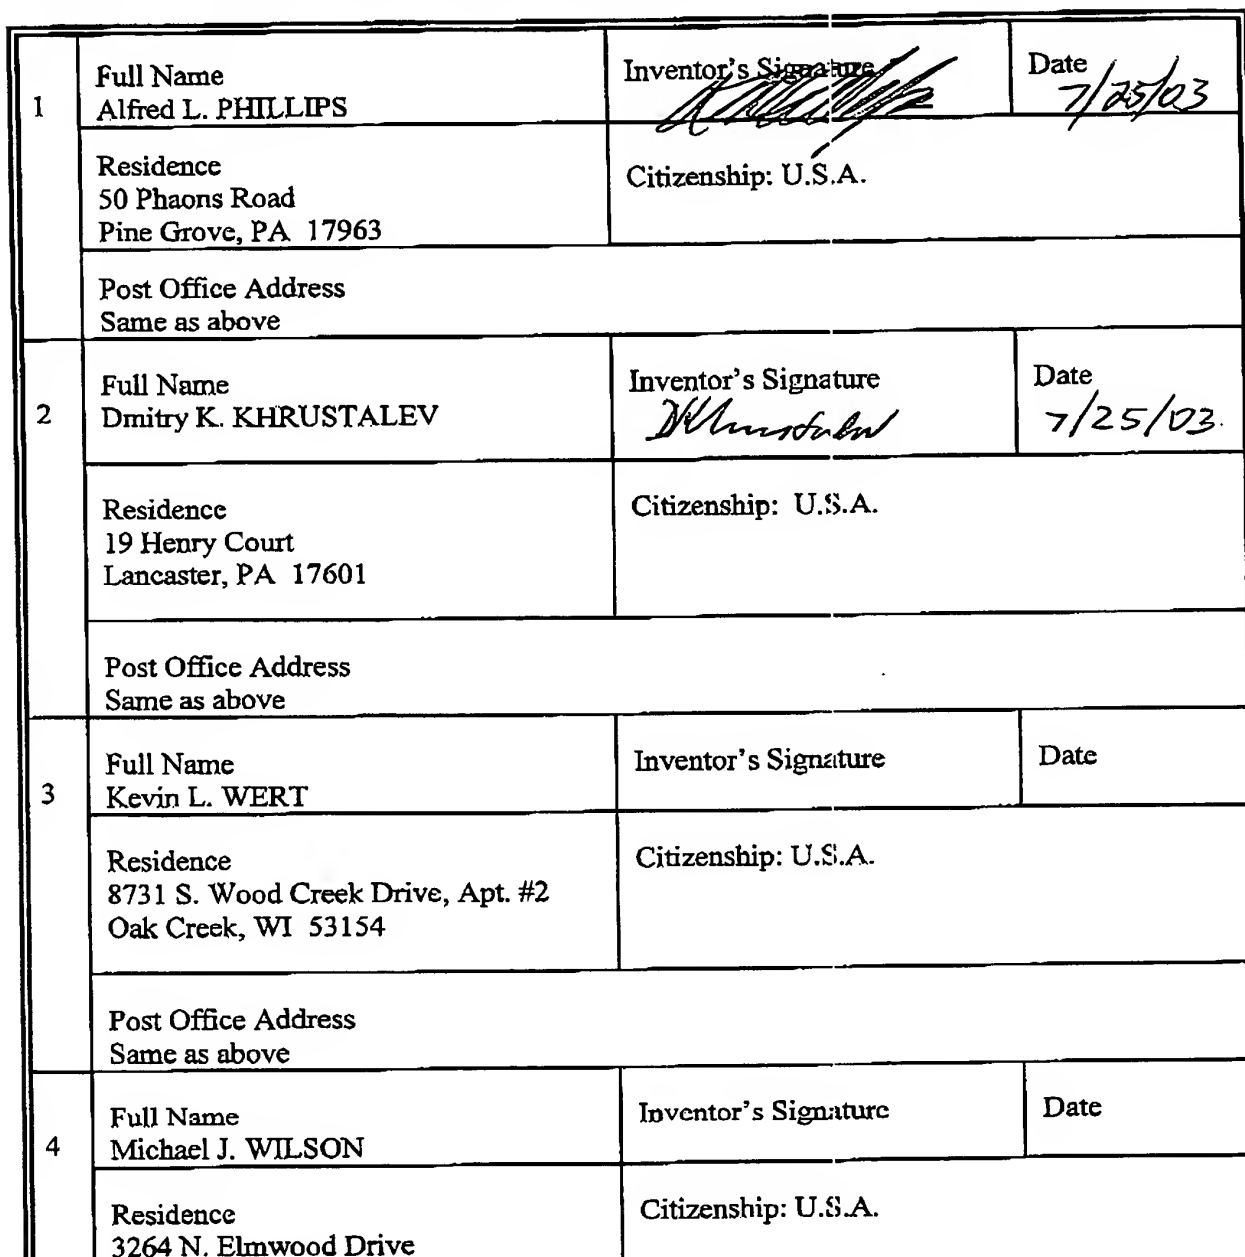 1
Full Name
Alfred L. PHILLIPS
Inventor's Signature
Date
7/25/03
Residence
50 Phaons Road
Pine Grove, PA 17963
Citizenship: U.S.A.
Post Office Address
Same as above
2
Full Name
Dmitry K. KHRUSTALEV
Inventor's Signature
DKhrustalev
Date
7/25/03
Residence
19 Henry Court
Lancaster, PA 17601
Citizenship: U.S.A.
Post Office Address
Same as above
3
Full Name
Kevin L. WERT
Inventor's Signature
Date
Residence
8731 S. Wood Creek Drive, Apt. #2
Oak Creek, WI 53154
Citizenship: U.S.A.
Post Office Address
Same as above
4
Full Name
Michael J. WILSON
Inventor's Signature
Date
Residence
3264 N. Elmwood Drive
Citizenship: U.S.A.